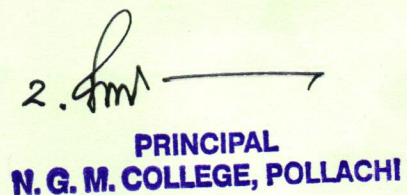 2.
PRINCIPAL
N. G. M. COLLEGE, POLLACHI